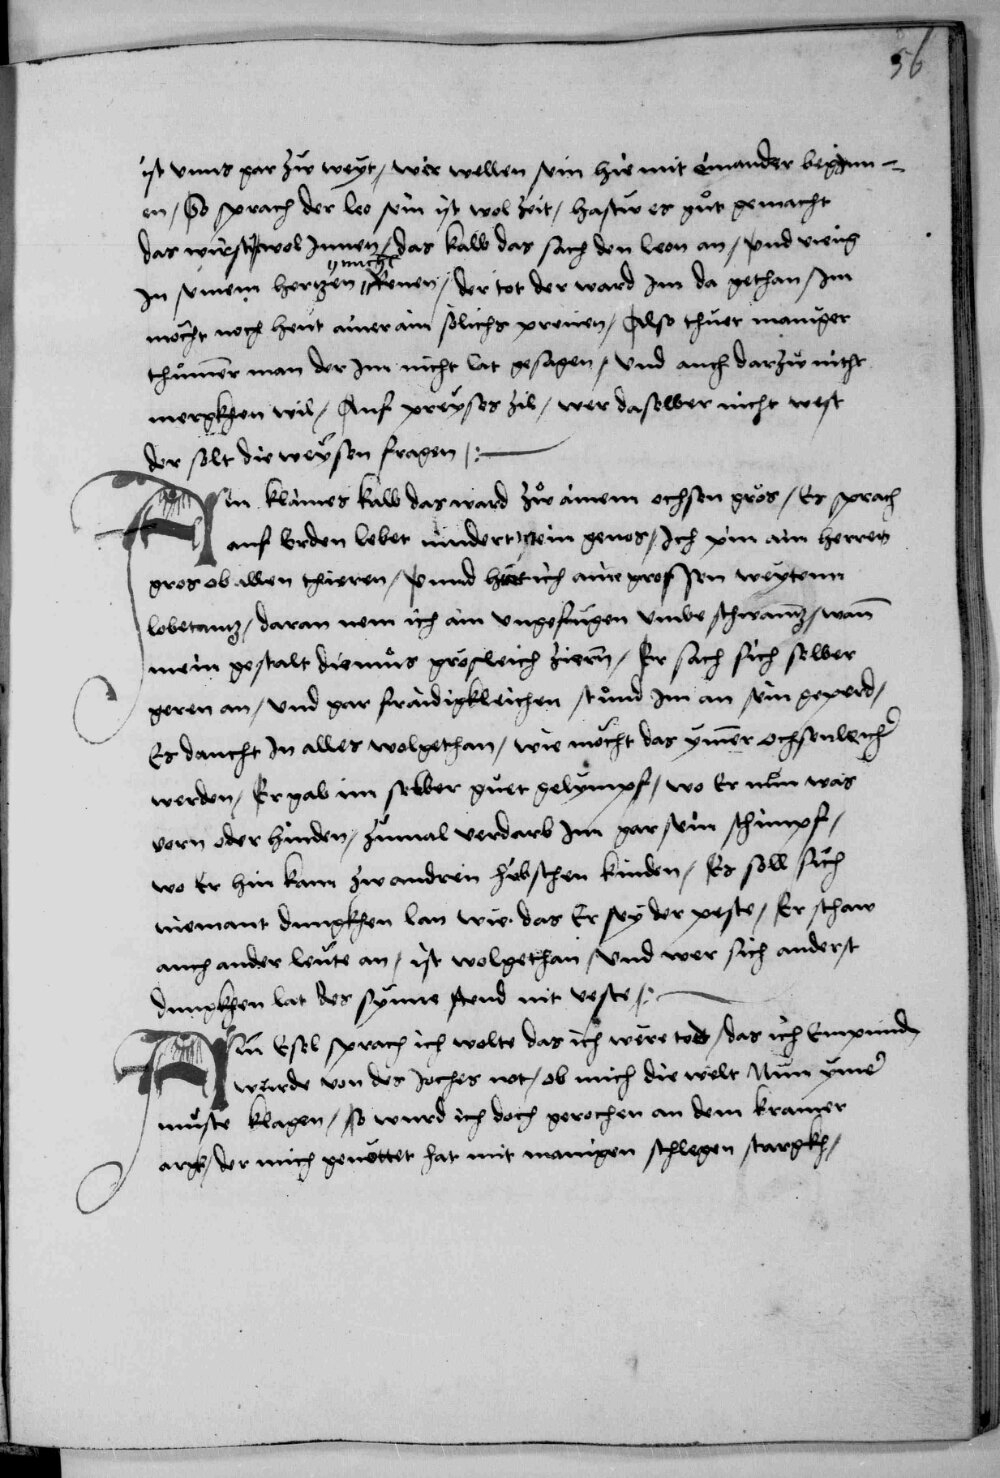 56
ist vnns gar zw weyt / wir wellen sein hie mit einander begynn-
en / So sprach der leo sein ist wol zeit / hastw es guot gemacht
das wirstw wol Innen / das kalb das sach den leon an / Vnd vieng
In seinem hertzen / der tot der ward Im da gethan / Im
möcht noch heut ainer ain sölichs preinen / Also thuet maniger
thummer man der Im nicht lat gesagen / Vnd auch darzw nicht
mergkhen wil / Auf preyses zil / wer da selber nicht west
der solt die weysen fragen /:
Ain klaines kalb das ward zw ainem ochsen gros / Es sprach
auf Erden lebet nindert mein genos / Ich pin ain herren
gros ob allen thieren / Vnnd hör ich aine grossen weytenn
lobetantz / daran nem ich ain vngefuegen vmbe schwantz / wann
mein gestalt die muos grösleich ziern / Er sach sich selber
geren an / Vnd gar fraidigkleichen stuond Im an sein geperd /
Es daucht In alles wolgethan / wie möcht das ymmer ochsenleicher
werden / Er gab im selber guet gelympf / wo Er nun was
vorn oder hinden / Zumal verdarb Im gar sein schimpf /
wo Er hin kam zw andren hübschen kinden / Es soll sich
niemant dungkhen lan wie das Er sey der peste / Er schaw
auch ander leute an / ist wolgethan / Vnd wer sich anderst
dungkhen lat des synne stend nit veste /:
Ain Esel sprach ich wolte das ich were tod / das ich Empunden
würde von des Joches not / ob mich die welt Nun ymer
muoste klagen / So wurd ich doch gerochen an dem kramer
argk / der mich genöttet hat mit manigen schlegen stargkh /